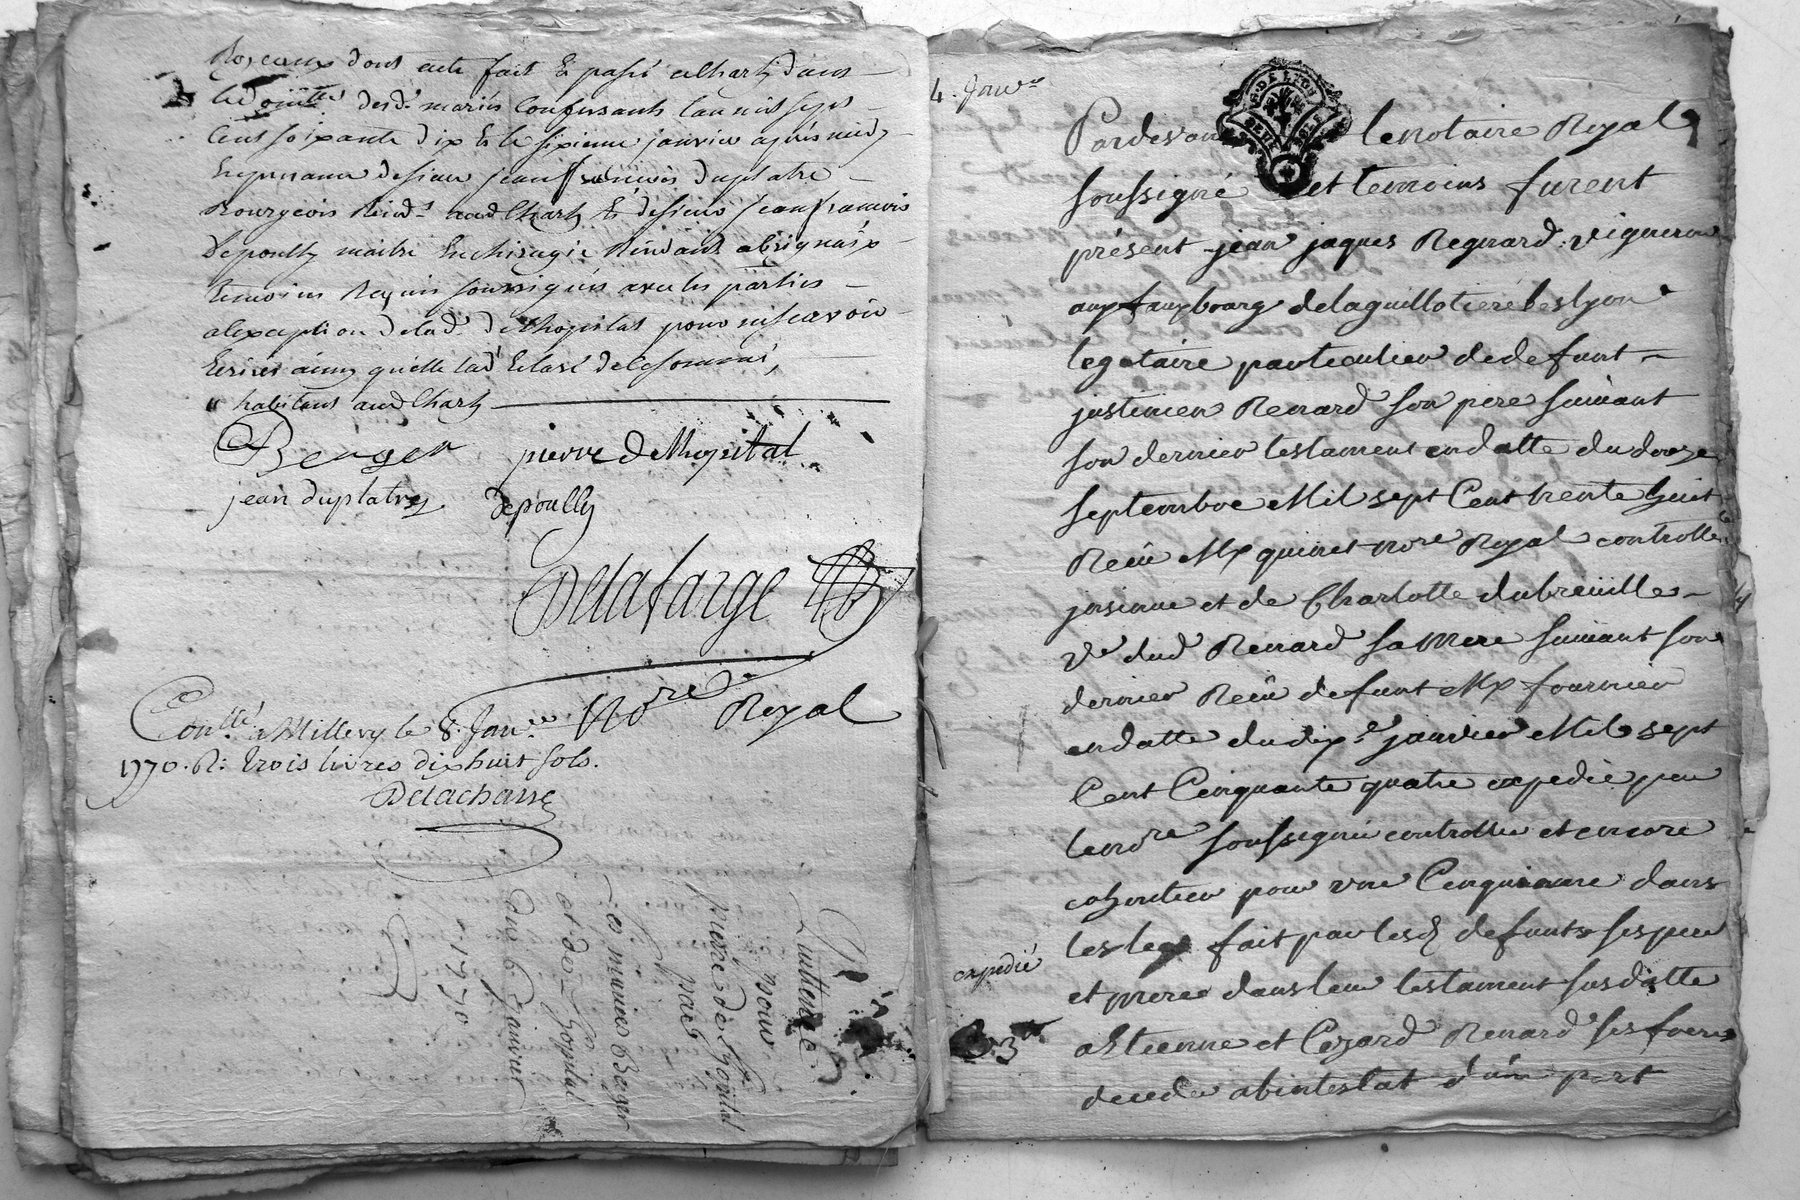 dont acte fait & passé a Charly dans
le domlle desd. mariés Confessants Lan mil sept
Cent soixante dix & le sixieme janvier après midy
En presance de sieur jean françois duplatre
Bourgeois Resid.t aud Charly & de sieur jean francois
Depoully maitre En chirugie Residant a brignaix
temoins Requis soussignés avec les parties
alexception delad. de Lhopital pour ne scavoir
Ecrire ainsy quelle la dé Eclaré de ce sommé,
" habitans aud Charly
Berger pierre de Lhopital
jean duplatre depoully
Delafarge
No.re Royal
Con.llé a Millery le 8. Janv.er
1770. R: trois livres dix huit sols.
Delachasse
Quittance
pour
pierre de Lhopital
par
Les mariés Berger
et de Lhopital
du 6 Janvier
1770
4. Janv.er
Pardevant le notaire Royal
soussigné et temoins furent
présent jean jaques Regnard vigneron
aux fauxbourg delaguillotiere les lyon
legataire particulier de defunt
justinien Renard son pere suivant
son dernier testament en datte du douze
septembre Mil sept Cent trente huit
Reçu Me quinet no.re Royal controllé
jnsinue et de Charlotte dubreüille
Ve dud Renard sa mere suivant son
dernier Reçu defunt Me fournier
endatte du dix.e janvier Mil sept
Cent Cinquante quatre expedié par
le no.re soussigné controllé et encore
cohéritier pour une Cinquieme dans
les legs fait par lesd defunts ses pere
et mere dans leur testament susdatte
a Etienne et Cezard Renard ses freres
decedes abintestat d'une part
expedié
3